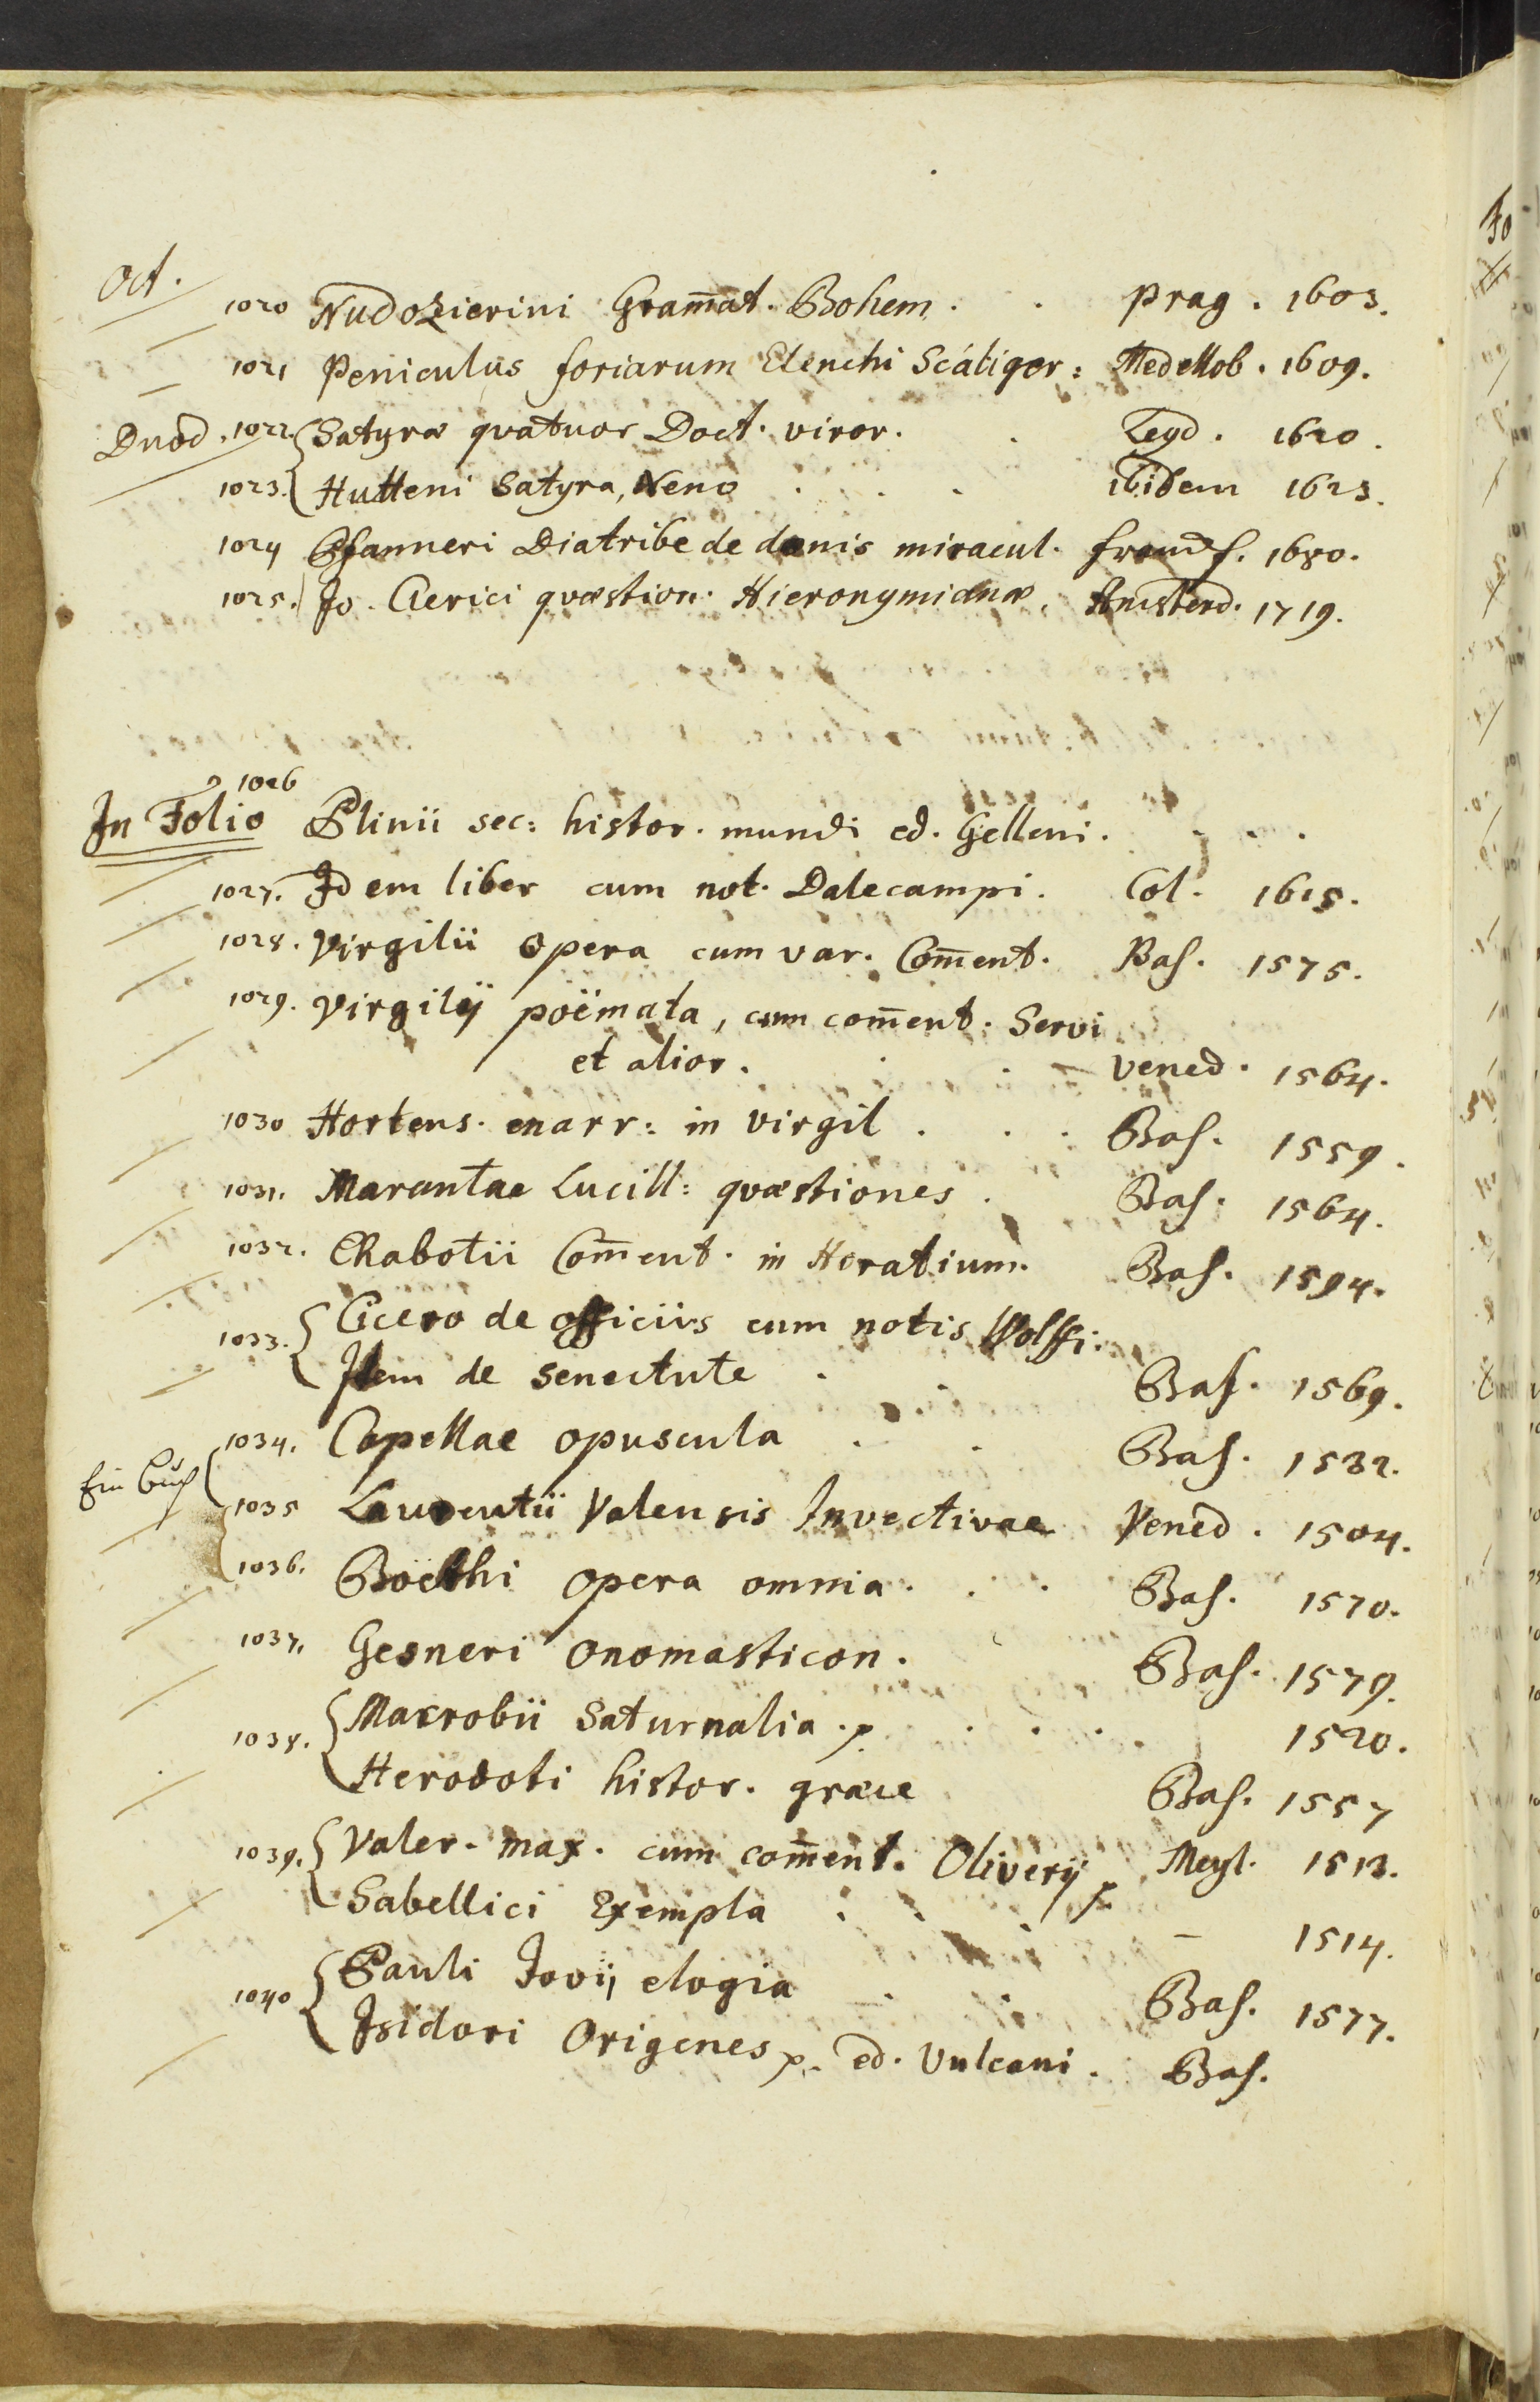 Oct.
1020 Nudozierini Gram̄at. Bohem. . Prag. 1603.
1021 Peniculus foriarum Elenchi Scaliger: Medellob. 1609.
Duod. 1022. Satyræ quatuor Doct. viror. . Leyd. 1620.
1023. Hutteni Satyra, Nemo . . . ibidem 1623.
1024 Pfanneri Diatribe de donis miracul. francf. 1680.
1025. Jo. Clerici quæstion. Hieronymianæ. Amsterd. 1719.
1026
In Folio Plinii sec: histor. mundi ed. Gelleni. . . .
1027. Idem liber cum not. Dalecampi. Col. 1615.
1028. Virgilii opera cum var. Com̄ent. Bas. 1575.
1029. Virgilij poëmata, cum com̄ent. Servi
et alior. . . Vened. 1564.
1030 Hortens. enarr: in Virgil . . . Bas. 1559.
1031. Marantae Lucill: quæstiones . Bas. 1564.
1032. Chabotii Com̄ent. in Horatium. Bas. 1594.
1033. Cicero de officiis cum notis Wolffi:
Item de senectute . . Bas. 1569.
1034. Capellae opuscula . . Bas. 1532.
Ein Buch
1035 Laurentii Valensis Invectivae Vened. 1504.
1036. Boëthi opera omnia. . . Bas. 1570.
1037. Gesneri onomasticon. Bas. 1579.
1038. Macrobii Saturnalia . . . . 1520.
Herodoti histor. græce Bas. 1557
1039. Valer. max. cum com̄ent. Oliverij Meyl. 1513.
Sabellici Exempla . . . – 1514.
1040 Pauli Jovij elogia . . Bas. 1577.
Isidori Origenes ed. Vulcani. Bas.